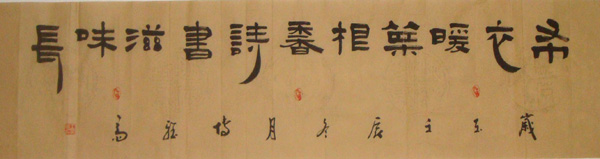 布衣暖菜根香詩書滋味長
歲在壬辰冬月